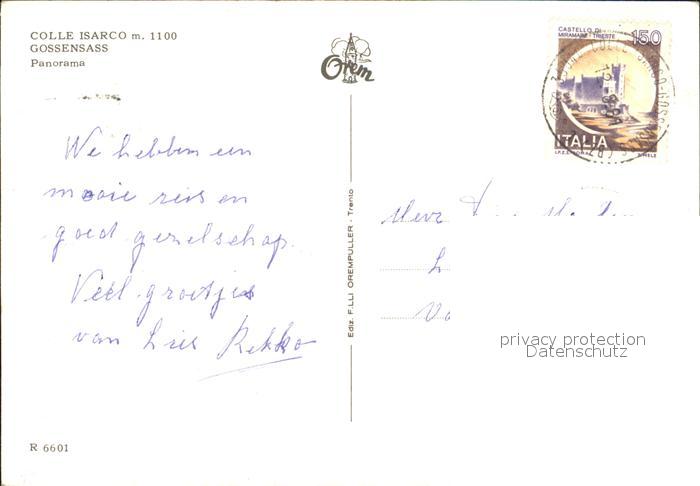 COLLE ISARCO m. 1100
GOSSENSASS
Panorama
We hebben een
mooie reis en
goed gezelschap.
Veel groetjes
van Lies Rekko
R 6601
Orem
Ediz. F.LLI OREMPULLER - Trento
CASTELLO DI
MIRAMARE - TRIESTE
150
ITALIA
Mevr
privacy protection
Datenschutz